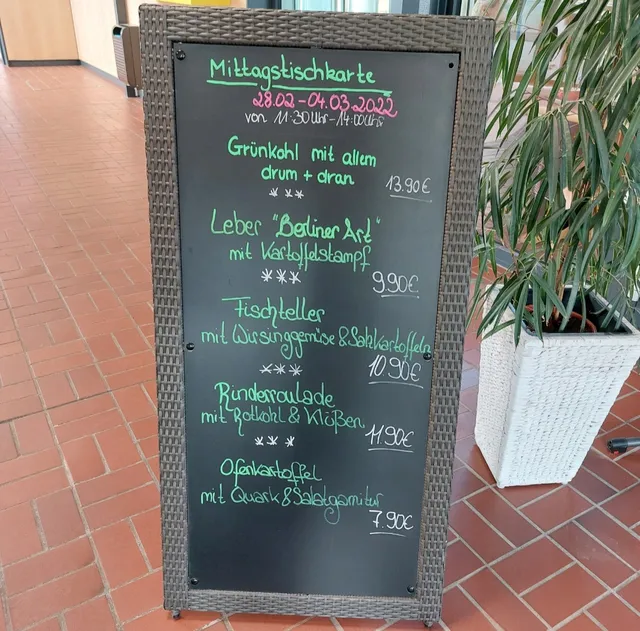 Mittagstischkarte
28.02-04.03.2022
von 11:30Uhr-14:00Uhr
Grünkohl mit allem
drum + dran
13.90€
***
Leber "Berliner Art"
mit Kartoffelstampf
***
9.90€
Fischteller
mit Wirsinggemüse & Salzkartoffeln
***
10.90€
Rinderroulade
mit Rotkohl & Klößen
***
11.90€
Ofenkartoffel
mit Quark & Salatgarnitur
7.90€